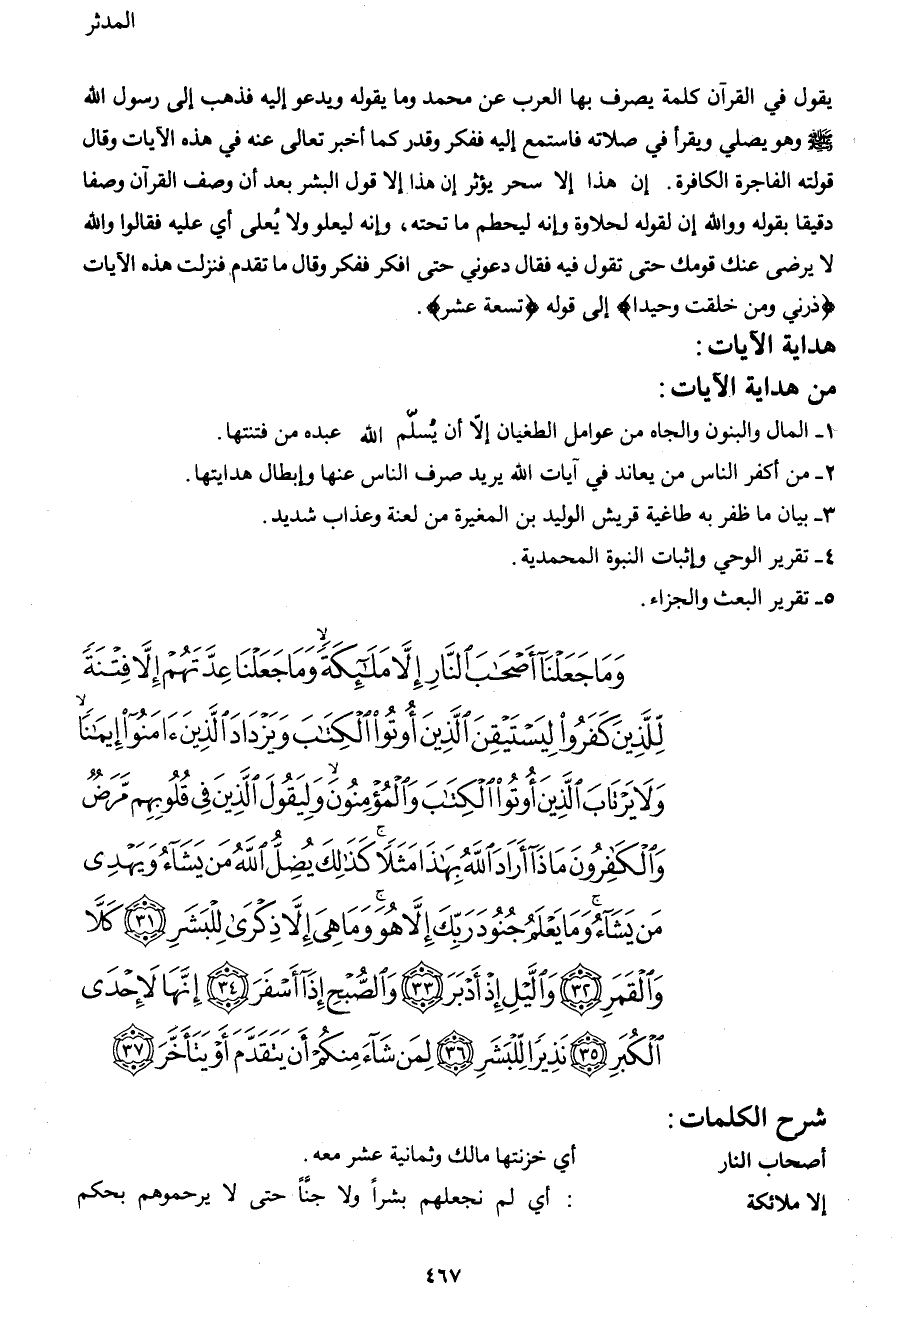 المدثر
يقول في القرآن كلمة يصرف بها العرب عن محمد وما يقوله ويدعو إليه فذهب إلى رسول الله
ﷺ وهو يصلي ويقرأ في صلاته فاستمع إليه ففكر وقدر كما أخبر تعالى عنه في هذه الآيات وقال
قولته الفاجرة الكافرة. إن هذا إلا سحر يؤثر إن هذا إلا قول البشر بعد أن وصف القرآن وصفا
دقيقا بقوله ووالله إن لقوله لحلاوة وإنه ليحطم ما تحته، وإنه ليعلو ولا يُعلى أي عليه فقالوا والله
لا يرضى عنك قومك حتى تقول فيه فقال دعوني حتى افكر ففكر وقال ما تقدم فنزلت هذه الآيات
﴿ذرني ومن خلقت وحيدا﴾ إلى قوله ﴿تسعة عشر﴾.
هداية الآيات:
من هداية الآيات:
١ـ المال والبنون والجاه من عوامل الطغيان إلاّ أن يُسلّم الله عبده من فتنتها.
٢ـ من أكفر الناس من يعاند في آيات الله يريد صرف الناس عنها وإبطال هدايتها.
٣ـ بيان ما ظفر به طاغية قريش الوليد بن المغيرة من لعنة وعذاب شديد.
٤ـ تقرير الوحي وإثبات النبوة المحمدية.
٥ـ تقرير البعث والجزاء.
وَمَا جَعَلْنَآ أَصْحَٰبَ ٱلنَّارِ إِلَّا مَلَٰٓئِكَةً ۙ وَمَا جَعَلْنَا عِدَّتَهُمْ إِلَّا فِتْنَةً
لِّلَّذِينَ كَفَرُوا۟ لِيَسْتَيْقِنَ ٱلَّذِينَ أُوتُوا۟ ٱلْكِتَٰبَ وَيَزْدَادَ ٱلَّذِينَ ءَامَنُوٓا۟ إِيمَٰنًا ۙ
وَلَا يَرْتَابَ ٱلَّذِينَ أُوتُوا۟ ٱلْكِتَٰبَ وَٱلْمُؤْمِنُونَ ۙ وَلِيَقُولَ ٱلَّذِينَ فِى قُلُوبِهِم مَّرَضٌ
وَٱلْكَٰفِرُونَ مَاذَآ أَرَادَ ٱللَّهُ بِهَٰذَا مَثَلًا ۚ كَذَٰلِكَ يُضِلُّ ٱللَّهُ مَن يَشَآءُ وَيَهْدِى
مَن يَشَآءُ ۚ وَمَا يَعْلَمُ جُنُودَ رَبِّكَ إِلَّا هُوَ ۚ وَمَا هِىَ إِلَّا ذِكْرَىٰ لِلْبَشَرِ ٣١ كَلَّا
وَٱلْقَمَرِ ٣٢ وَٱلَّيْلِ إِذْ أَدْبَرَ ٣٣ وَٱلصُّبْحِ إِذَآ أَسْفَرَ ٣٤ إِنَّهَا لَإِحْدَى
ٱلْكُبَرِ ٣٥ نَذِيرًا لِّلْبَشَرِ ٣٦ لِمَن شَآءَ مِنكُمْ أَن يَتَقَدَّمَ أَوْ يَتَأَخَّرَ ٣٧
شرح الكلمات:
أصحاب النار أي خزنتها مالك وثمانية عشر معه.
إلا ملائكة : أي لم نجعلهم بشراً ولا جنَّاً حتى لا يرحموهم بحكم
٤٦٧